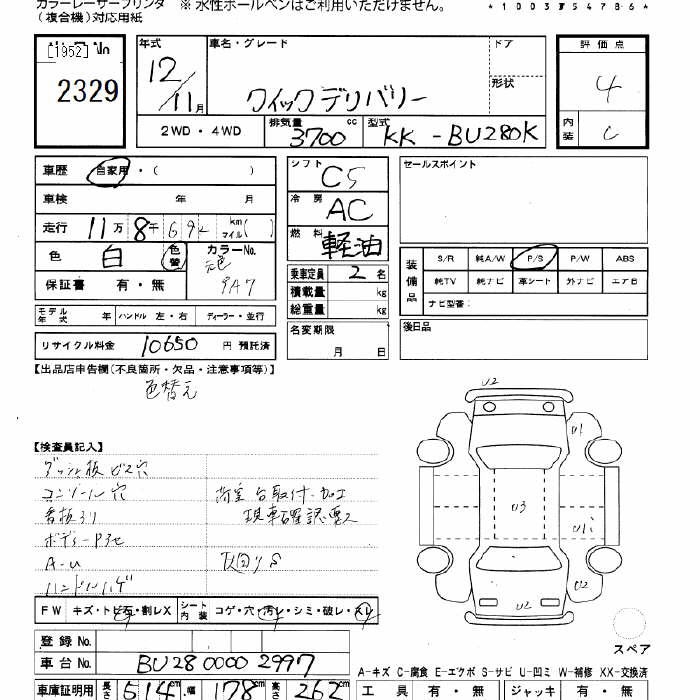 カラーレーザープリンタ ※ 水性ボールペンはご利用いただけません。
(複合機)対応用紙
[1952]
2329
年式 12/11月
車名・グレード クイックデリバリー
ドア
形状
2WD・4WD
排気量 3700 cc
型式 KK-BU280K
評価点 4
内装 C
車歴 自家用・( )
車検 年 月
走行 11万8千692 km マイル( )
色 白 色替
カラーNo. 元色 9A7
保証書 有・無
モデル年式 年 ハンドル 左・右 ディーラー・並行
リサイクル料金 10650 円 預託済
シフト C5
冷房 AC
燃料 軽油
乗車定員 2 名
積載量 kg
総重量 kg
名変期限 月 日
セールスポイント
装備品 S/R 純A/W P/S P/W ABS
純TV 純ナビ 革シート 外ナビ エアB
ナビ型番:
後日品
【出品店申告欄(不良箇所・欠品・注意事項等)】
色替え
【検査員記入】
ダッシュ板ビス穴
コンソール穴
荷室台取付・加工
現車確認願う
A-U
ハンドルハゲ
U2
U1
U3
U1
U2
U2
FW キズ・トビ石・割レX
シート内装 コゲ・穴・汚レ・シミ・破レ・スレ
スペア
登録 No.
車台 No. BU280000 2997
A-キズ C-腐食 E-エクボ S-サビ U-凹ミ W-補修 XX-交換済
車庫証明用 長さ 514 cm 幅 178 cm 高さ 262 cm
工具 有・無 ジャッキ 有・無